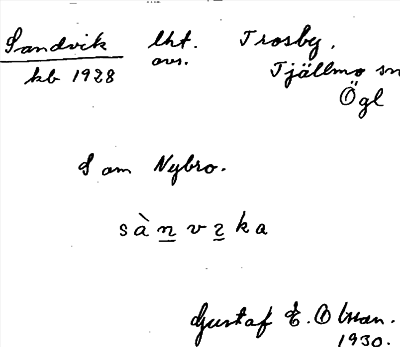 Sandvik lht. Trosby,
kb 1928 avs. Tjällmo sn
Ögl
S om Nybro.
sànvɛka
Gustaf E. Olsson.
1930.